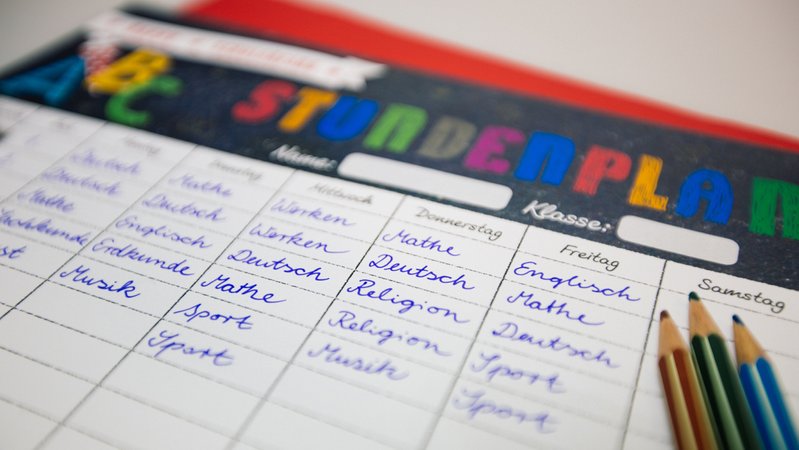 ABC
STUNDENPLAN
Name:
Klasse:
Dienstag Mittwoch Donnerstag Freitag Samstag
Deutsch Mathe Werken Mathe Englisch
Deutsch Deutsch Werken Deutsch Mathe
Mathe Englisch Deutsch Religion Deutsch
Erdkunde Mathe Religion Sport
Musik Sport Musik Sport
Sport